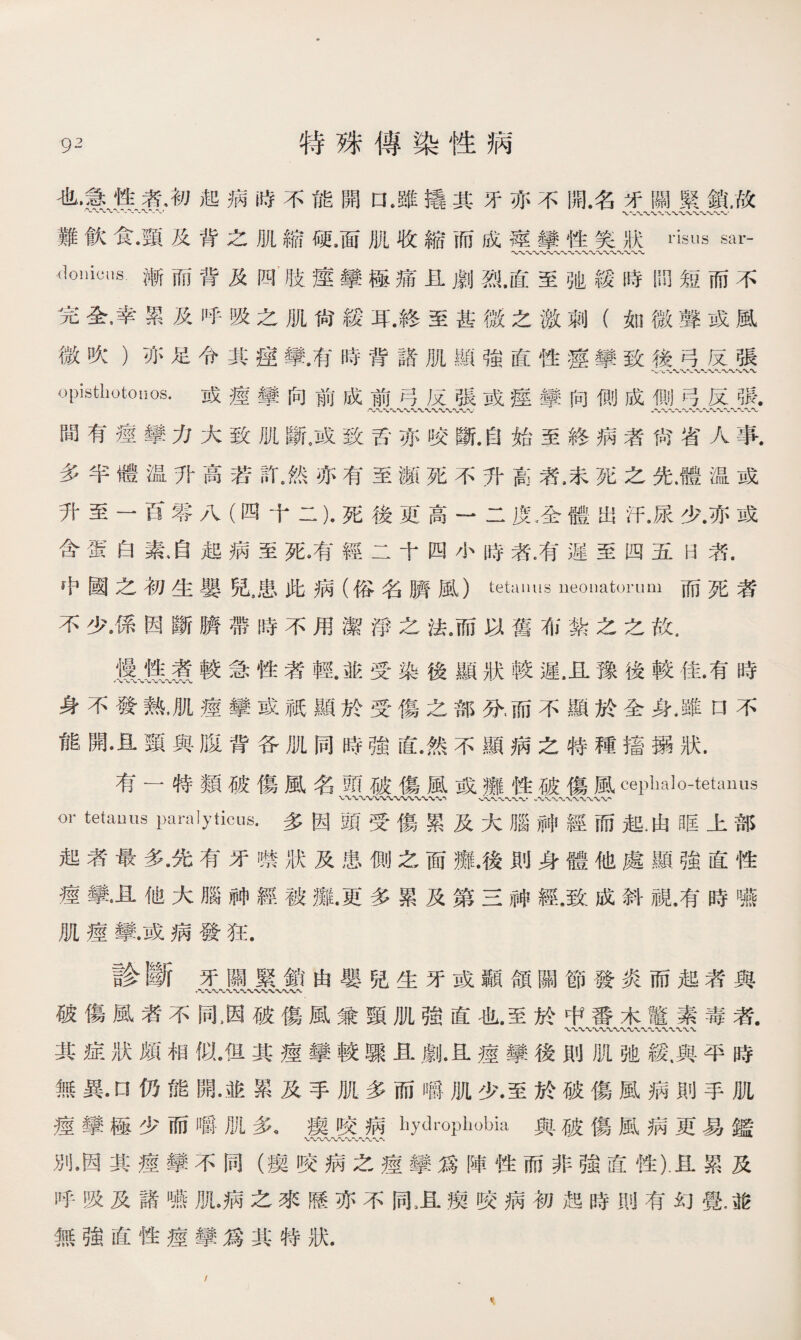 92 特殊傳染性病
也.急性者,初起病時不能開口.雖撬其牙亦不開.名牙關緊鎖.故
難飲食.頸及背之肌縮硬.面肌收縮而成瘞攣性笑狀 risus sar-
donicus. 漸而背及四肢瘞攣極痛且劇烈.直至弛緩時間短而不
完全.幸累及呼吸之肌尙緩耳.終至甚微之激刺(如微聲或風
微吹)亦足令其瘞攣.有時背諸肌顯強直性瘞攣致後弓反張
opisthotonos. 或瘞攣向前成前弓反張或瘞攣向側成側弓反張.
間有瘞攣力大致肌斷.或致舌亦咬斷.自始至終病者尙省人事.
多半體温升高若許.然亦有至瀕死不升高者.未死之先.體温或
升至一百零八(四十二).死後更高一二度.全體出汗.尿少.亦或
含蛋白素.自起病至死.有經二十四小時者.有遲至四五日者.
中國之初生嬰兒.患此病(俗名臍風) tetanus neonatorum 而死者
不少.係因斷臍帶時不用潔淨之法.而以舊布紮之之故.
慢性者較急性者輕.並受染後顯狀較遲.且豫後較佳.有時
身不發熱.肌瘞攣或祇顯於受傷之部分.而不顯於全身.雖口不
能開.且頸與腹背各肌同時強直.然不顯病之特種搐搦狀.
有一特類破傷風名頭破傷風或癱性破傷風 cephalo-tetanus
or tetanus paralyticus. 多因頭受傷累及大腦神經而起.由眶上部
起者最多.先有牙噤狀及患側之面癱.後則身體他處顯強直性
瘞攣.且他大腦神經被癱.更多累及第三神經.致成斜視.有時嚥
肌瘞攣.或病發狂.
診斷 牙關緊鎖由嬰兒生牙或顳頜關節發炎而起者與
破傷風者不同.因破傷風兼頸肌強直也.至於中番木鼈素毒者.
其症狀頗相似.但其瘞攣較驟且劇.且瘞攣後則肌弛緩.與平時
無異.口仍能開.並累及手肌多而嚼肌少.至於破傷風病則手肌
瘞攣極少而嚼肌多. 瘈咬病 hydrophobia 與破傷風病更易鑑
別.因其瘞攣不同(瘈咬病之瘞攣爲陣性而非強直性).且累及
呼吸及諸嚥肌.病之來歷亦不同.且瘈咬病初起時則有幻覺.並
無強直性瘞攣爲其特狀.